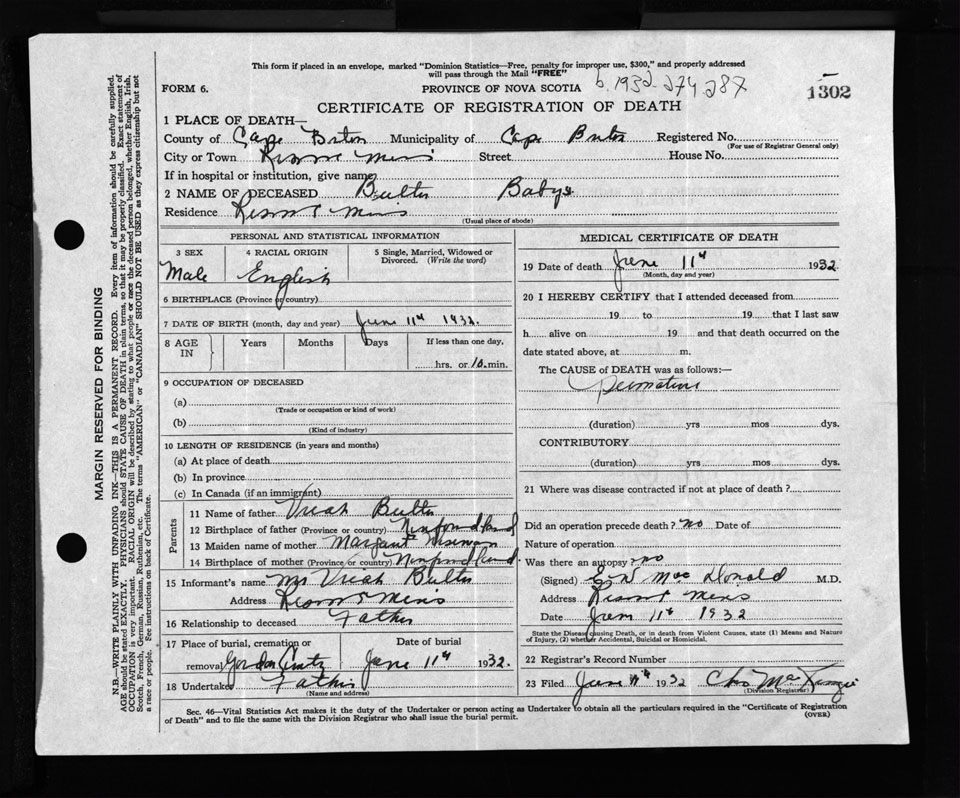 This form if placed in an envelope, marked "Dominion Statistics—Free, penalty for improper use, $300," and properly addressed
will pass through the Mail "FREE"
FORM 6. PROVINCE OF NOVA SCOTIA b. 1932-274-287 1302
CERTIFICATE OF REGISTRATION OF DEATH
1 PLACE OF DEATH—
County of Cape Breton Municipality of Cape Breton Registered No.
(For use of Registrar General only)
City or Town Street House No.
If in hospital or institution, give name
2 NAME OF DECEASED Baby
Residence
(Usual place of abode)
PERSONAL AND STATISTICAL INFORMATION
3 SEX 4 RACIAL ORIGIN 5 Single, Married, Widowed or Divorced. (Write the word)
Male English
6 BIRTHPLACE (Province or country)
7 DATE OF BIRTH (month, day and year) June 11th 1932.
8 AGE IN Years Months Days If less than one day,
hrs. or 10 min.
9 OCCUPATION OF DECEASED
(a)
(Trade or occupation or kind of work)
(b)
(Kind of industry)
10 LENGTH OF RESIDENCE (in years and months)
(a) At place of death
(b) In province
(c) In Canada (if an immigrant)
Parents
11 Name of father Uriah
12 Birthplace of father (Province or country) Newfoundland
13 Maiden name of mother Margaret
14 Birthplace of mother (Province or country) Newfoundland.
15 Informant's name Mr Uriah
Address
16 Relationship to deceased Father
17 Place of burial, cremation or removal Date of burial
June 11th 1932.
18 Undertaker Father
(Name and address)
MEDICAL CERTIFICATE OF DEATH
19 Date of death June 11th 1932
(Month, day and year)
20 I HEREBY CERTIFY that I attended deceased from
19 to 19 that I last saw
h alive on 19 and that death occurred on
date stated above, at m.
The CAUSE of DEATH was as follows:—
Premature
(duration) yrs mos dys.
CONTRIBUTORY
(duration) yrs mos dys.
21 Where was disease contracted if not at place of death?
Did an operation precede death? no Date of
Nature of operation
Was there an autopsy? no
(Signed) MacDonald M.D.
Address
Date June 11th 1932
State the Disease causing Death, or in death from Violent Causes, state (1) Means and Nature
of Injury, (2) whether Accidental, Suicidal or Homicidal.
22 Registrar's Record Number
23 Filed June 11th 1932
(Division Registrar)
Sec. 46—Vital Statistics Act makes it the duty of the Undertaker or person acting as Undertaker to obtain all the particulars required in the "Certificate of Registration
of Death" and to file the same with the Division Registrar who shall issue the burial permit. (OVER)
MARGIN RESERVED FOR BINDING
N.B.—WRITE PLAINLY WITH UNFADING INK—THIS IS A PERMANENT RECORD. Every item of information should be carefully supplied.
AGE should be stated EXACTLY. PHYSICIANS should STATE CAUSE OF DEATH in plain terms, so that it may be properly classified. Exact statement of
OCCUPATION is very important. RACIAL ORIGIN will be described by stating to what people or race the deceased person belonged, whether English, Irish,
Scotch, French, German, Russian, Ruthenian, etc. The terms "AMERICAN" or "CANADIAN" SHOULD NOT BE USED as they express citizenship but not
a race or people. See instructions on back of Certificate.